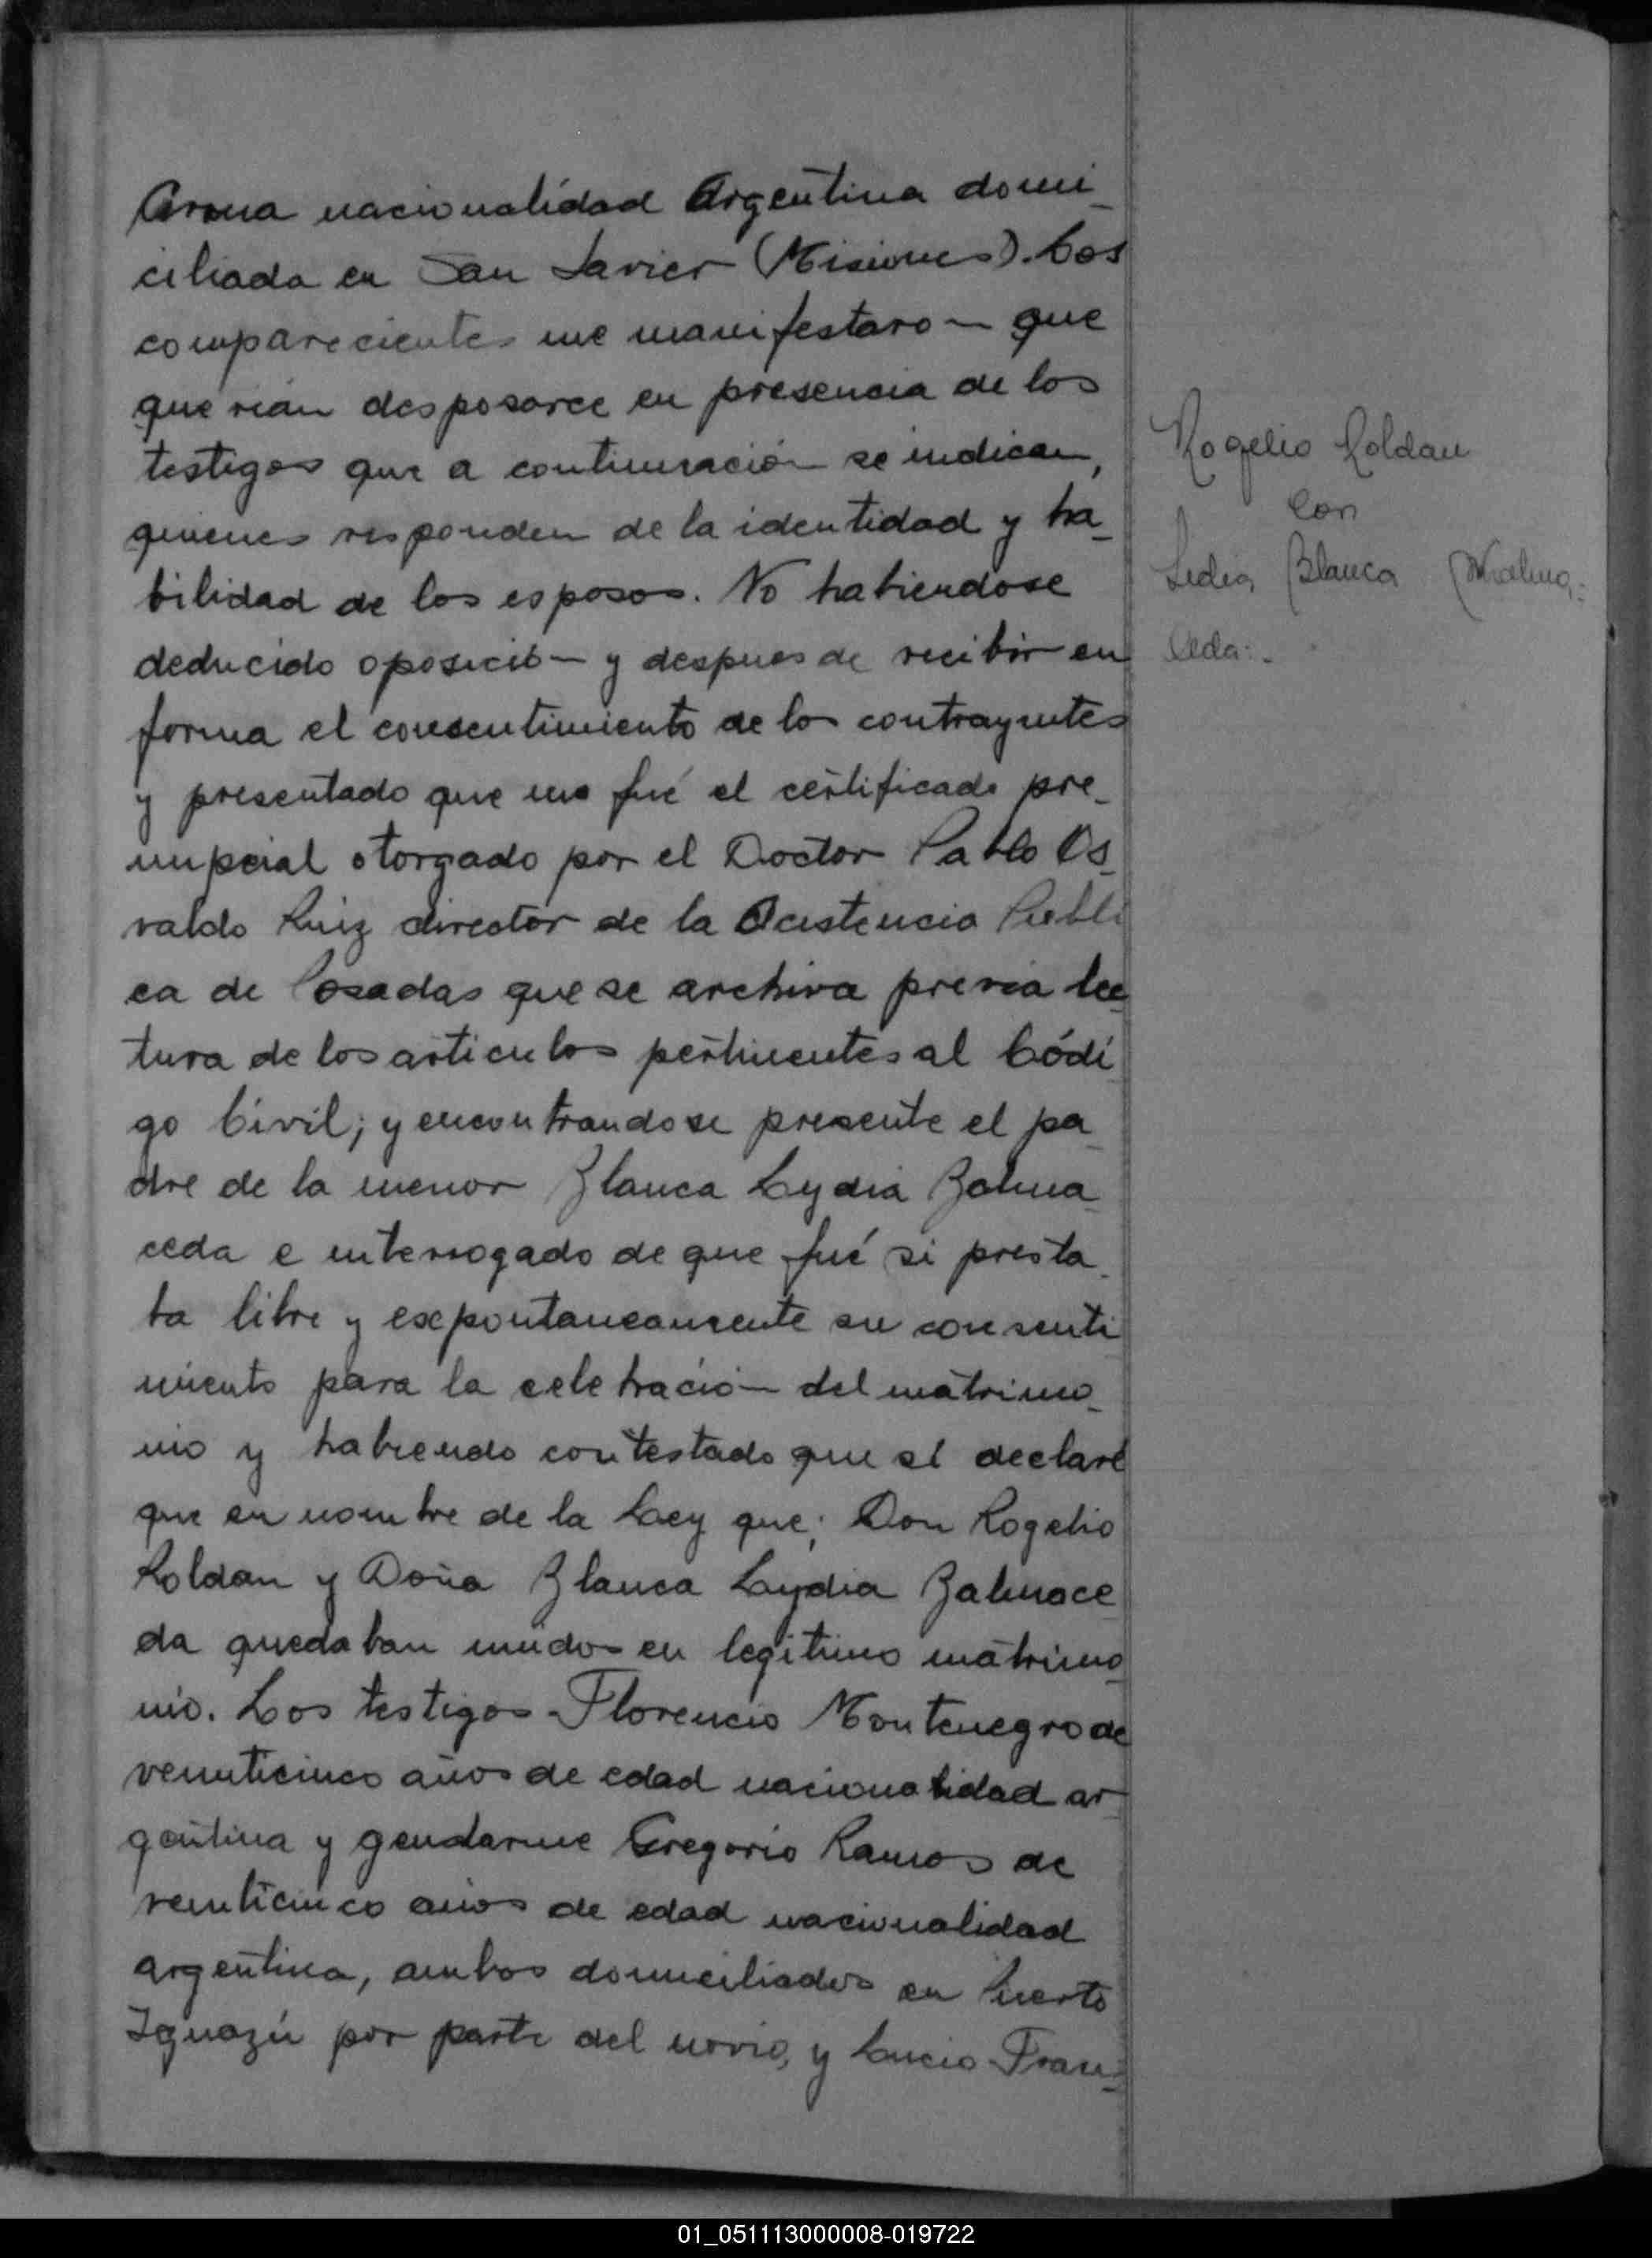 Arma nacionalidad Argentina domi_
ciliada en San Javier (Misiones). Los
comparecientes me manifestaron que
querian desposarce en presencia de los
testigos que a continuación se indican,
quienes responden de la identidad y ha_
bilidad de los esposos. No habiendose
deducido oposición y despues de recibir en
forma el consentimiento de los contrayentes
y presentado que me fué el certificado pre_
nupcial otorgado por el Doctor Pablo Os_
valdo Ruiz director de la Acistencia Publi
ca de Posadas que se archiva previa lec_
tura de los articulos pertinentes al Códi
go Civil; y encontrandose presente el pa_
dre de la menor Blanca Lydia Balma_
ceda e interrogado de que fué si presta_
ba libre y expontaneamente su consenti
miento para la celebración del matrimo_
nio y habiendo contestado que sí declaré
que en nombre de la Ley que; Don Rogelio
Roldan y Doña Blanca Lydia Balmace
da quedaban unidos en legitimo matrimo_
nio. Los testigos Florencio Montenegro de
veinticinco años de edad nacionalidad ar_
gentina y gendarme Gregorio Ramos de
veinticinco años de edad nacionalidad
argentina, ambos domiciliados en Puerto
Iguazú por parte del novio, y Lucio Fran_
Rogelio Roldan
con
Lidia Blanca
ceda:.
01_051113000008-019722